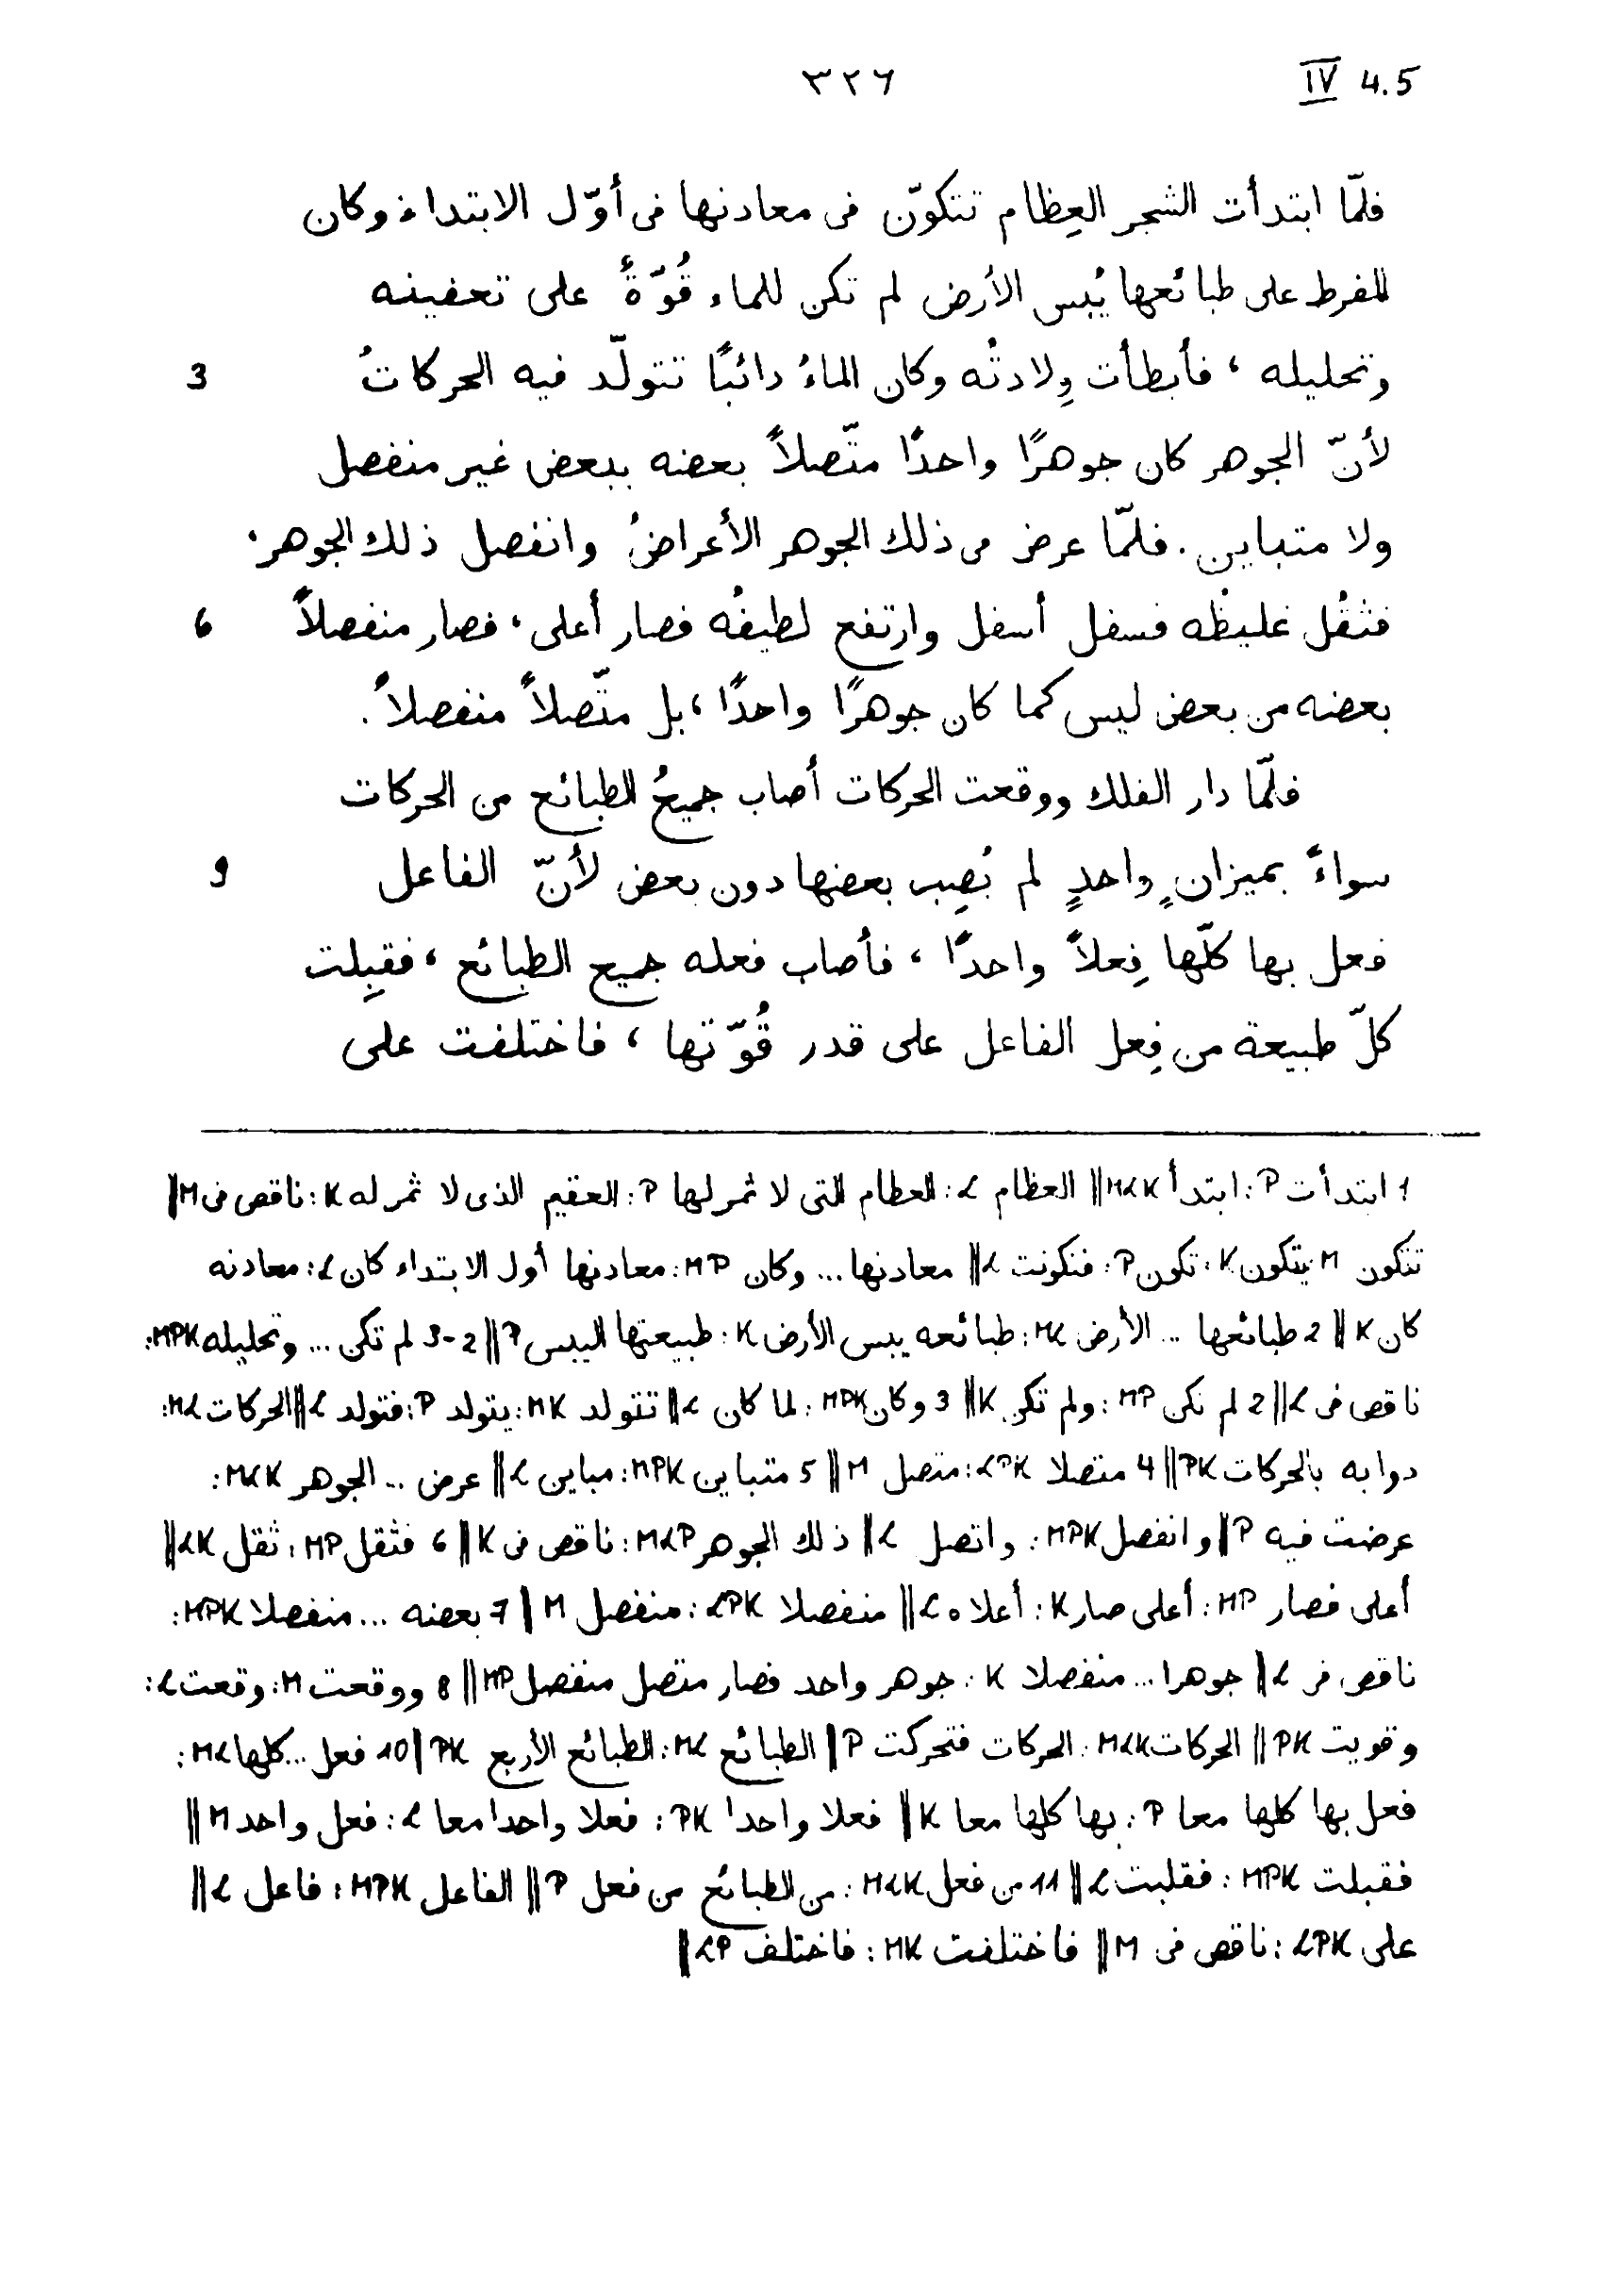 ٣٢٦ IV 4.5
فلمّا ابتدأت الشجر العِظام تتكوّن فى معادنها فى أوّل الابتداء وكان
للفرط على طبائعها يُبس الأرض لم تكن للماء قُوّةٌ على تعفينه
وتحليله ، فأبطأت وِلادتُه وكان الماءُ دائبًا تتولّد فيه الحركاتُ 3
لأنّ الجوهر كان جوهرًا واحدًا متّصلاً بعضه ببعض غير منفصل
ولا متباين . فلمّا عرض من ذلك الجوهر الأعراضُ وانفصل ذلك الجوهر ،
فثقُل غليظُه فسفل أسفل وارتفع لطيفُه فصار أعلى ، فصار منفصلاً 6
بعضه من بعض ليس كما كان جوهرًا واحدًا ، بل متّصلاً منفصلاً .
فلمّا دار الفلك ووقعت الحركات أصاب جميعُ الطبائع من الحركات
سواءً بميزانٍ واحدٍ لم يُصِب بعضها دون بعض لأنّ الفاعل 9
فعل بها كلّها فِعلاً واحدًا ، فأصاب فعله جميع الطبائع ، فقبِلت
كلّ طبيعة من فِعل الفاعل على قدر قُوّتها ، فاختلفت على
1 ابتدأت P : ابتدأ MLK || العظام L : العظام التى لا ثمر لها P : العقيم الذى لا ثمر له K : ناقص فى M ||
تتكون M : يتكون K : تكون P : فتكونت L || معادنها ... وكان MP : معادنها أول الابتداء كان L : معادنه
كان K || 2 طبائعها ... الأرض ML : طبائعه يبس الأرض K : طبيعتها اليبس P || 2-3 لم تكن ... وتحليله MPK :
ناقص فى L || 2 لم تكن MP : ولم تكن K || 3 وكان MPK : لما كان L || تتولد MK : يتولد P : فتولد L || الحركات ML :
دوابه بالحركات PK || 4 متصلا LPK : متصل M || 5 متباين MPK : مباين L || عرض ... الجوهر MLK :
عرضت فيه P || وانفصل MPK : واتصل L || ذلك الجوهر MLP : ناقص فى K || 6 فثقل MP : ثقل LK ||
أعلى فصار MP : أعلى صار K : أعلاه L || منفصلا LPK : منفصل M || 7 بعضه ... منفصلا MPK :
ناقص فى L || جوهرا ... منفصلا K : جوهر واحد فصار متصل منفصل MP || 8 ووقعت M : وقعت L :
وقويت PK || الحركات MLK : الحركات فتحركت P || الطبائع ML : الطبائع الأربع PK || 10 فعل ... كلها ML :
فعل بها كلها معا P : بها كلها معا K || فعلا واحدا PK : فعلا واحدا معا L : فعل واحد M ||
فقبلت MPK : فقلبت L || 11 من فعل MLK : من الطبائع من فعل P || الفاعل MPK : فاعل L ||
على LPK : ناقص فى M || فاختلفت MK : فاختلف LP ||